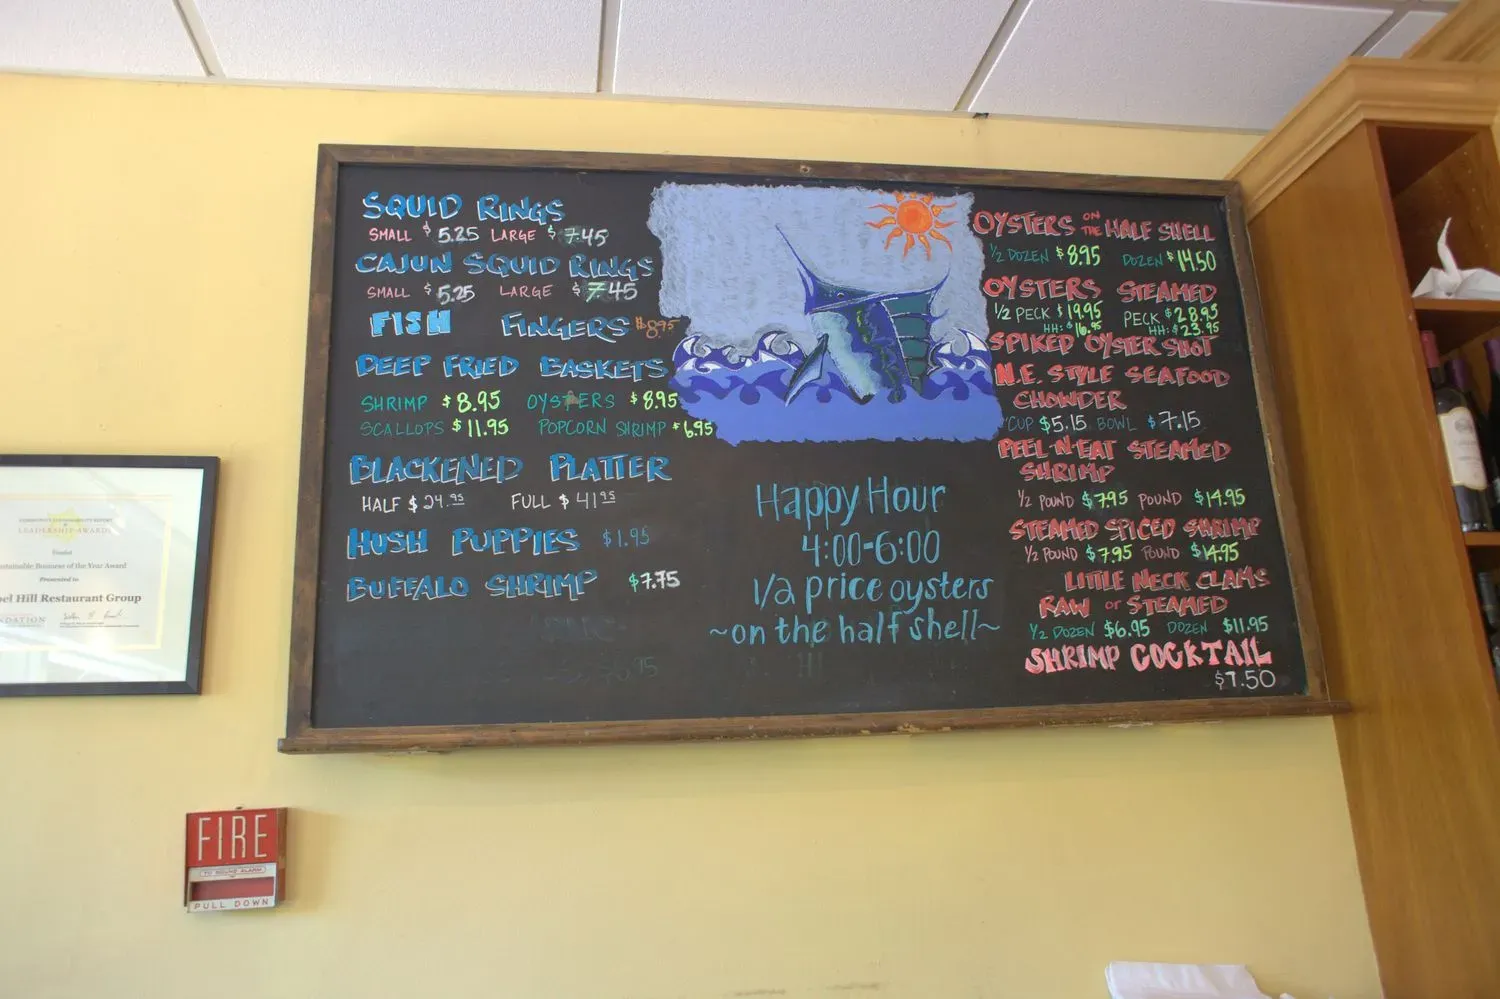 SQUID RINGS
SMALL $5.25 LARGE $7.45
CAJUN SQUID RINGS
SMALL $5.25 LARGE $7.45
FISH FINGERS $8.95
DEEP FRIED BASKETS
SHRIMP $8.95 OYSTERS $8.95
SCALLOPS $11.95 POPCORN SHRIMP $6.95
BLACKENED PLATTER
HALF $24.95 FULL $41.95
HUSH PUPPIES $1.95
BUFFALO SHRIMP $7.75
Happy Hour
4:00-6:00
1/2 price oysters
~on the half shell~
OYSTERS ON THE HALF SHELL
1/2 DOZEN $8.95 DOZEN $14.50
OYSTERS STEAMED
1/2 PECK $19.95 PECK $28.95
HH: $16.95 HH: $23.95
SPIKED OYSTER SHOT
N.E. STYLE SEAFOOD
CHOWDER
CUP $5.15 BOWL $7.15
PEEL-N-EAT STEAMED
SHRIMP
1/2 POUND $7.95 POUND $14.95
STEAMED SPICED SHRIMP
1/2 POUND $7.95 POUND $14.95
LITTLE NECK CLAMS
RAW or STEAMED
1/2 DOZEN $6.95 DOZEN $11.95
SHRIMP COCKTAIL
$7.50
LEADERSHIP AWARDS
Finalist
Sustainable Business of the Year Award
Presented to
el Hill Restaurant Group
NDATION
FIRE
TO SOUND ALARM
PULL DOWN